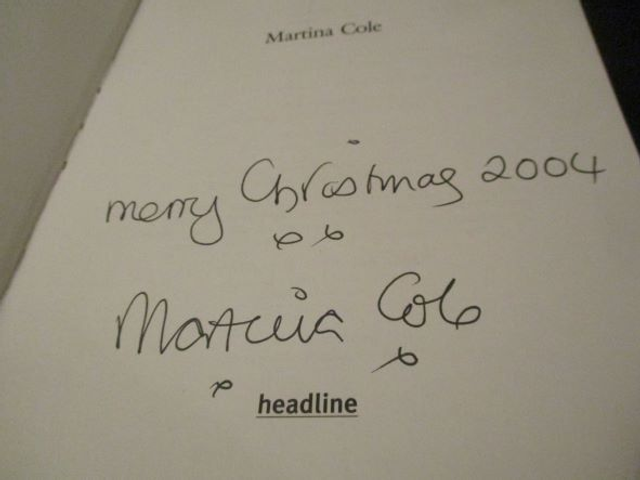 Martina Cole
merry Christmas 2004
xx
Martina Cole
x x
headline